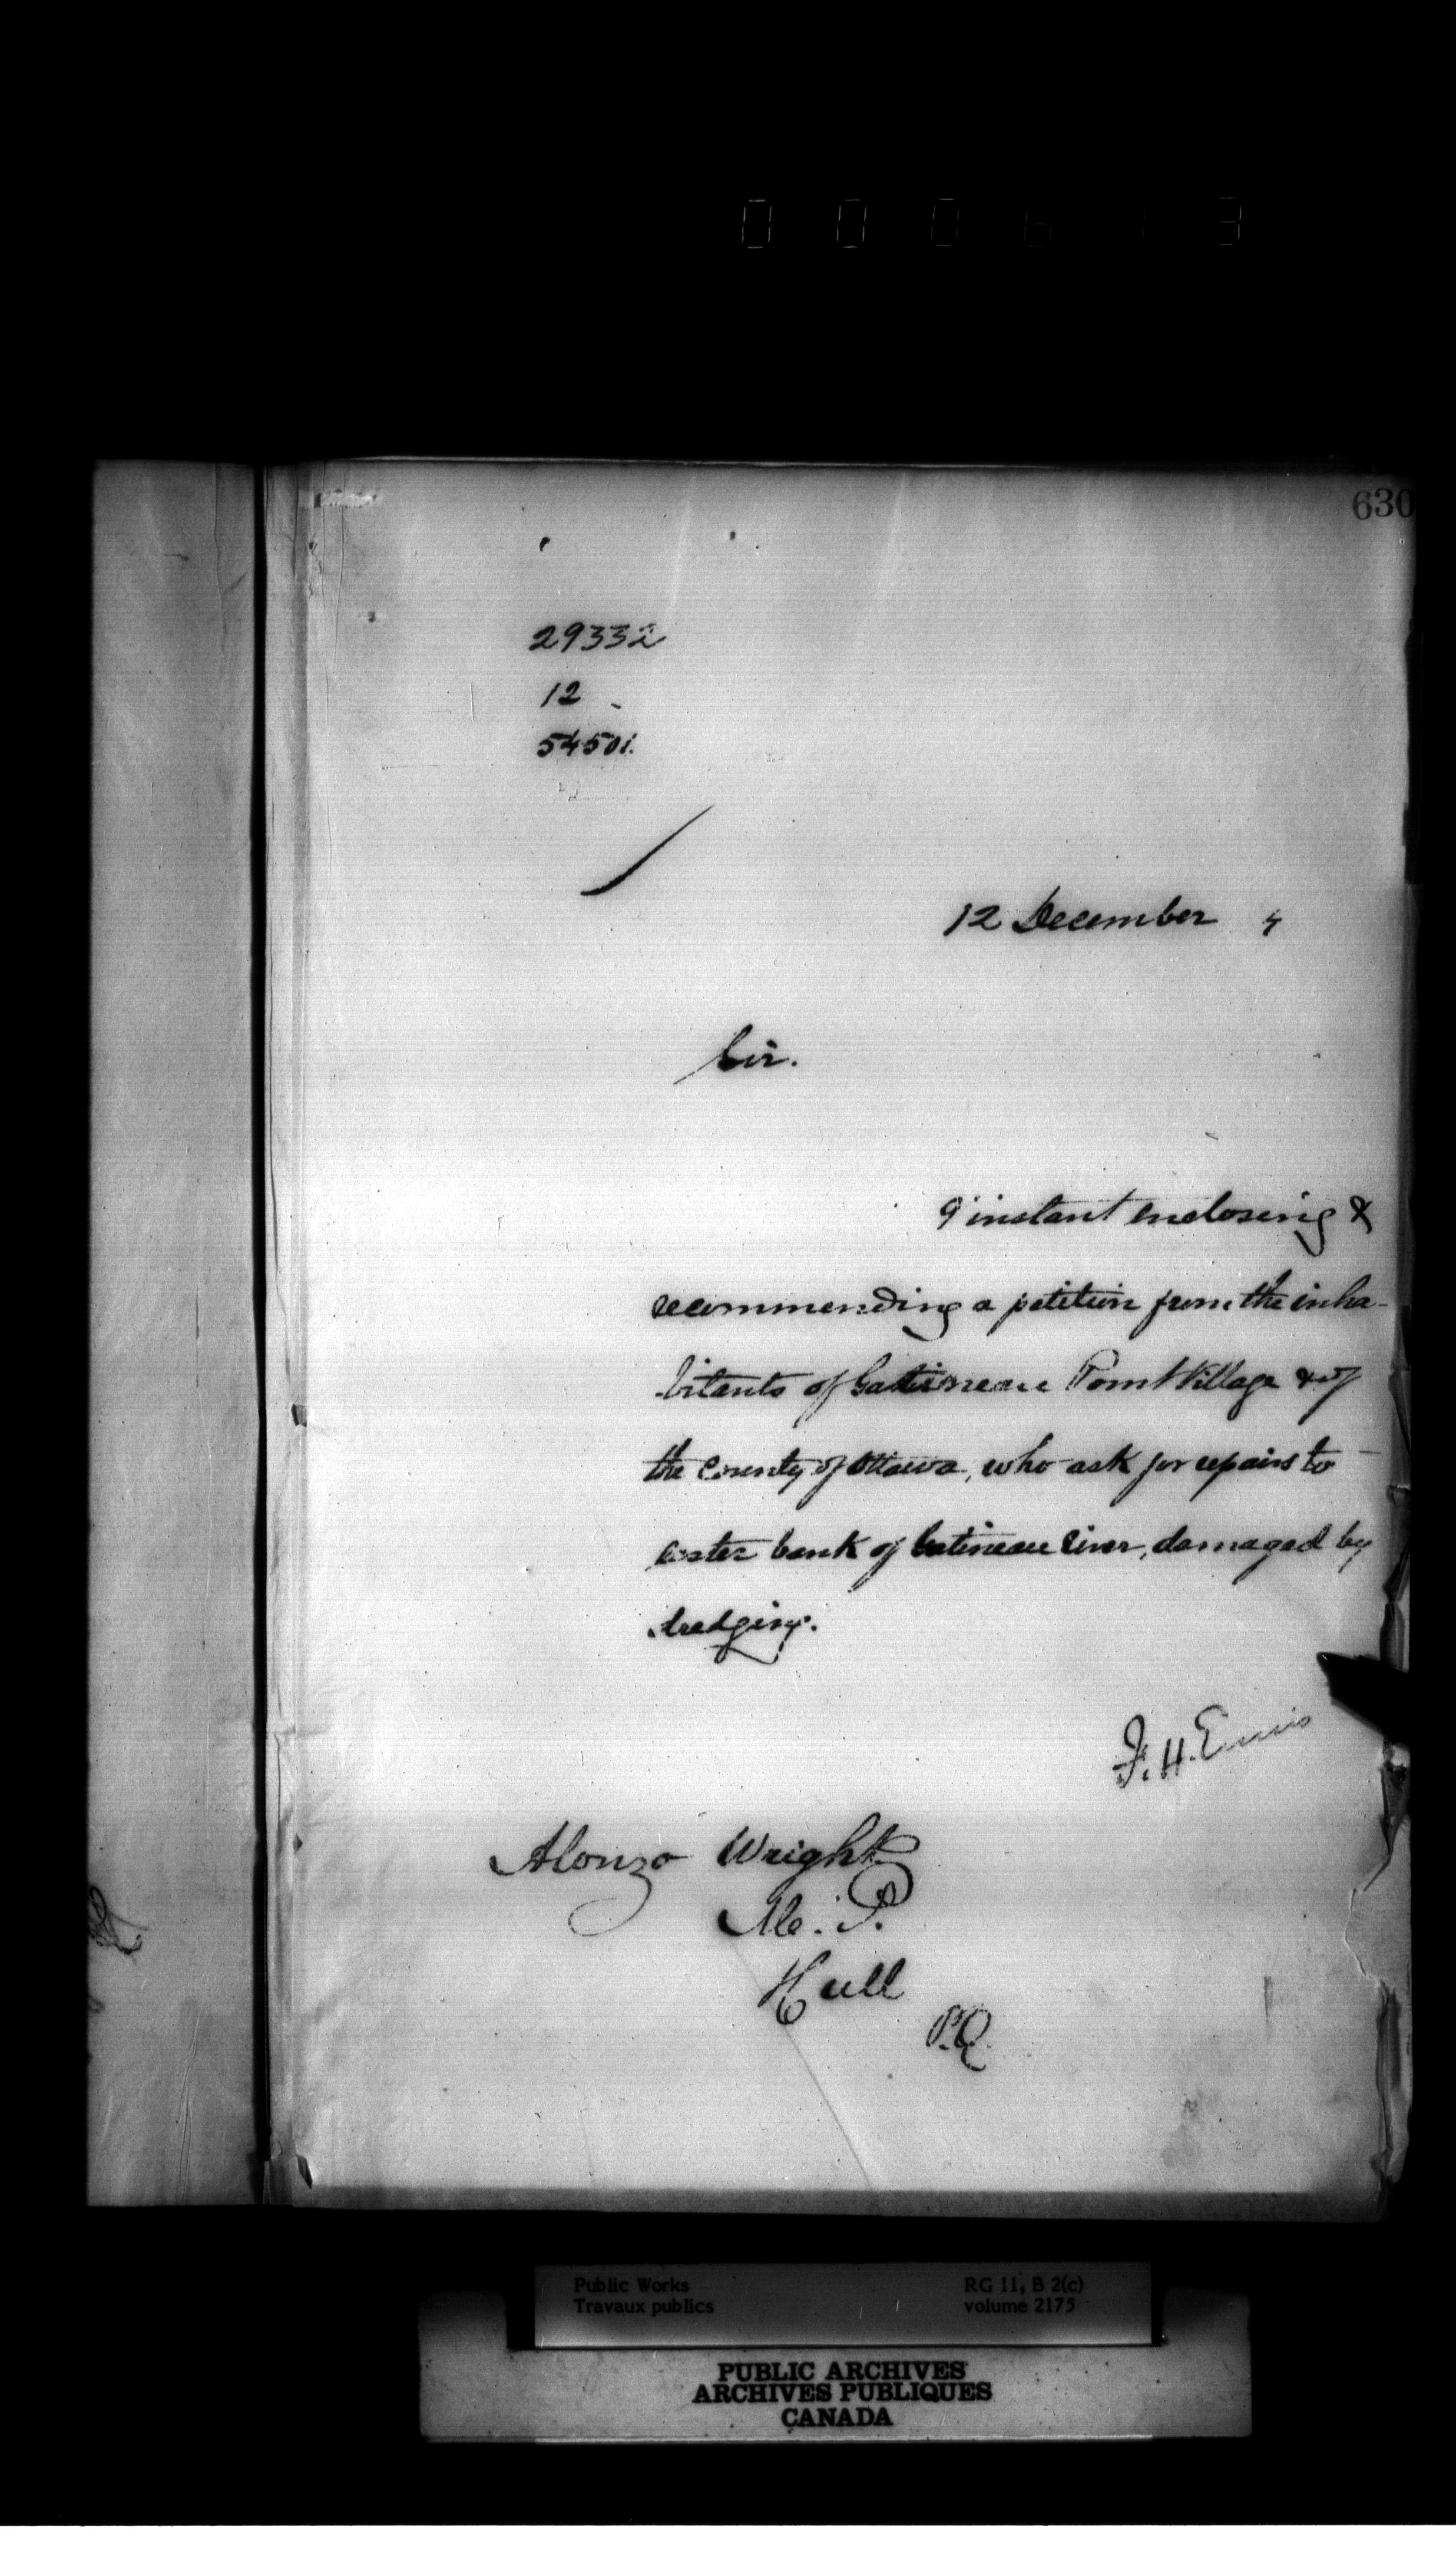 000613
630
29332
12
54501.
12 December 4
Sir.
9 instant enclosing &
recommending a petition from the inha-
bitants of Gatineau Point Village & of
the County of Ottawa, who ask for repairs to
bank of Gatineau River, damaged by
dredging.
F. H. Ennis
Alonzo Wright
M. P.
Hull
P.Q.
Public Works
Travaux publics
RG 11, B 2(c)
volume 2175
PUBLIC ARCHIVES
ARCHIVES PUBLIQUES
CANADA